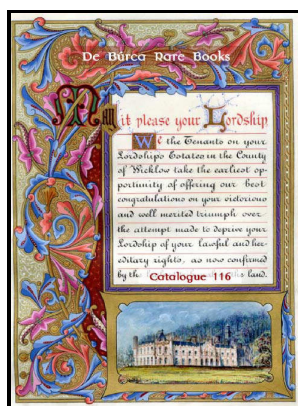 De Búrca Rare Books
May it please your Lordship
We the Tenants on your
Lordship's Estates in the County
of Wicklow take the earliest op-
portunity of offering our best
congratulations on your victorious
and well merited triumph over
the attempt made to deprive your
Lordship of your lawful and her-
editary rights, as now confirmed
by th land.
Catalogue 116